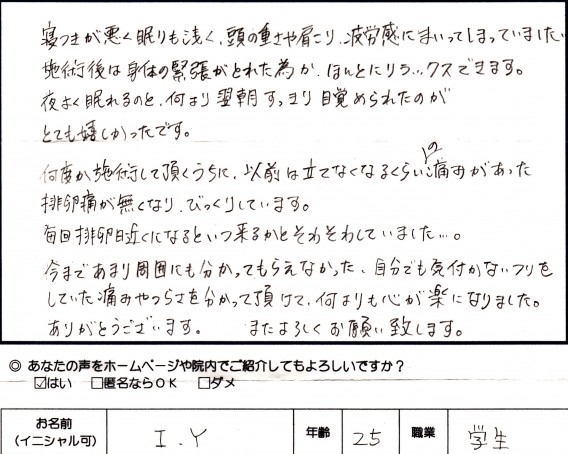 寝つきが悪く眠りも浅く、頭の重さや肩こり、疲労感にまいってしまっていました
施術後は身体の緊張がとれた為か、ほんとにリラックスできます。
夜よく眠れるのと、何より翌朝すっきり目覚められたのが
とても嬉しかったです。
何度か施術して頂くうちに、以前は立てなくなるくらいの痛みがあった
排卵痛が無くなり、びっくりしています。
毎回排卵日近くになるといつ来るかとそわそわしていました…。
今まであまり周囲にも分かってもらえなかった、自分でも気付かないフリを
していた痛みやつらさを分かって頂けて、何よりも心が楽になりました。
ありがとうございます。 またよろしくお願い致します。
◎ あなたの声をホームページや院内でご紹介してもよろしいですか？
☑はい □匿名ならOK □ダメ
お名前
(イニシャル可) I.Y 年齢 25 職業 学生